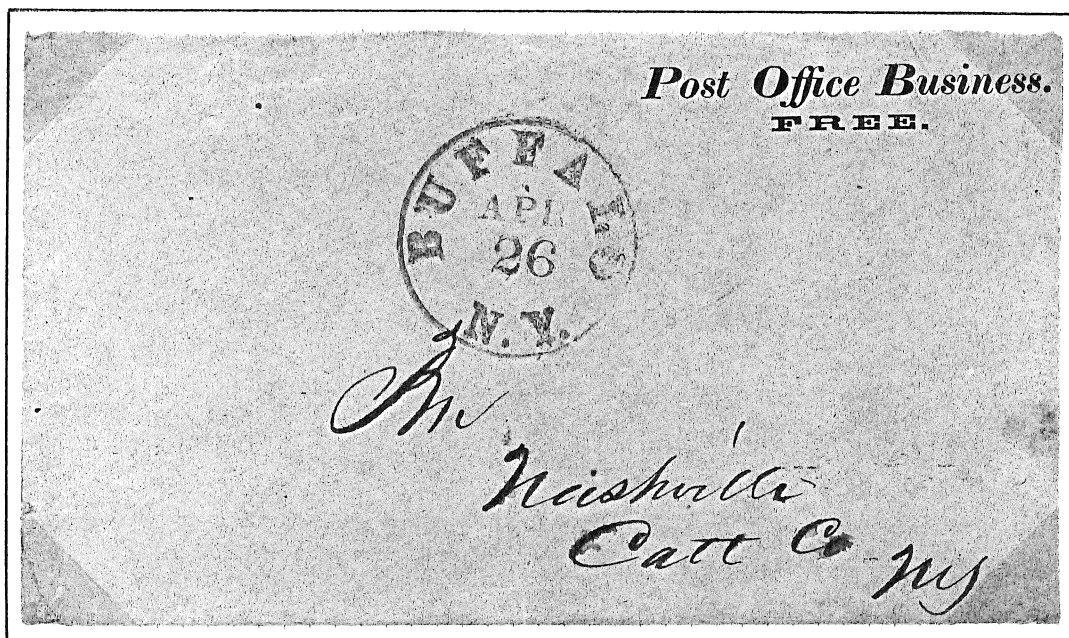 Post Office Business.
FREE.
BUFFALO
APR
26
N.Y.
PM
Nashville
Catt Co
NY